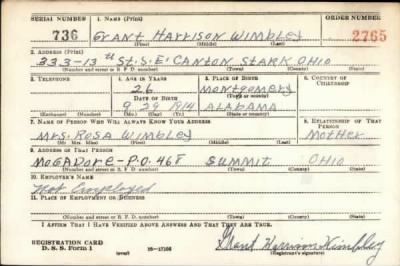 SERIAL NUMBER 1. NAME (Print) ORDER NUMBER
736 Grant Harrison Wimbley 2765
(First) (Middle) (Last)
2. ADDRESS (Print)
333-13th St. S.E. Canton Stark Ohio
(Number and street or R. F. D. number) (Town) (County) (State)
3. TELEPHONE 4. AGE IN YEARS 5. PLACE OF BIRTH 6. COUNTRY OF CITIZENSHIP
26 Montgomery
DATE OF BIRTH (Town or county)
9 29 1914 Alabama
(Exchange) (Number) (Mo.) (Day) (Yr.) (State or country)
7. NAME OF PERSON WHO WILL ALWAYS KNOW YOUR ADDRESS 8. RELATIONSHIP OF THAT PERSON
Mrs. Rosa Wimbley Mother
(Mr., Mrs., Miss) (First) (Middle) (Last)
9. ADDRESS OF THAT PERSON
Mogadore - P.O. 468 Summit Ohio
(Number and street or R. F. D. number) (Town) (County) (State)
10. EMPLOYER'S NAME
Not Employed
11. PLACE OF EMPLOYMENT OR BUSINESS
(Number and street or R. F. D. number) (Town) (County) (State)
I AFFIRM THAT I HAVE VERIFIED ABOVE ANSWERS AND THAT THEY ARE TRUE.
REGISTRATION CARD
D. S. S. Form 1 Grant Harrison Wimbley
(over) (Registrant's signature)